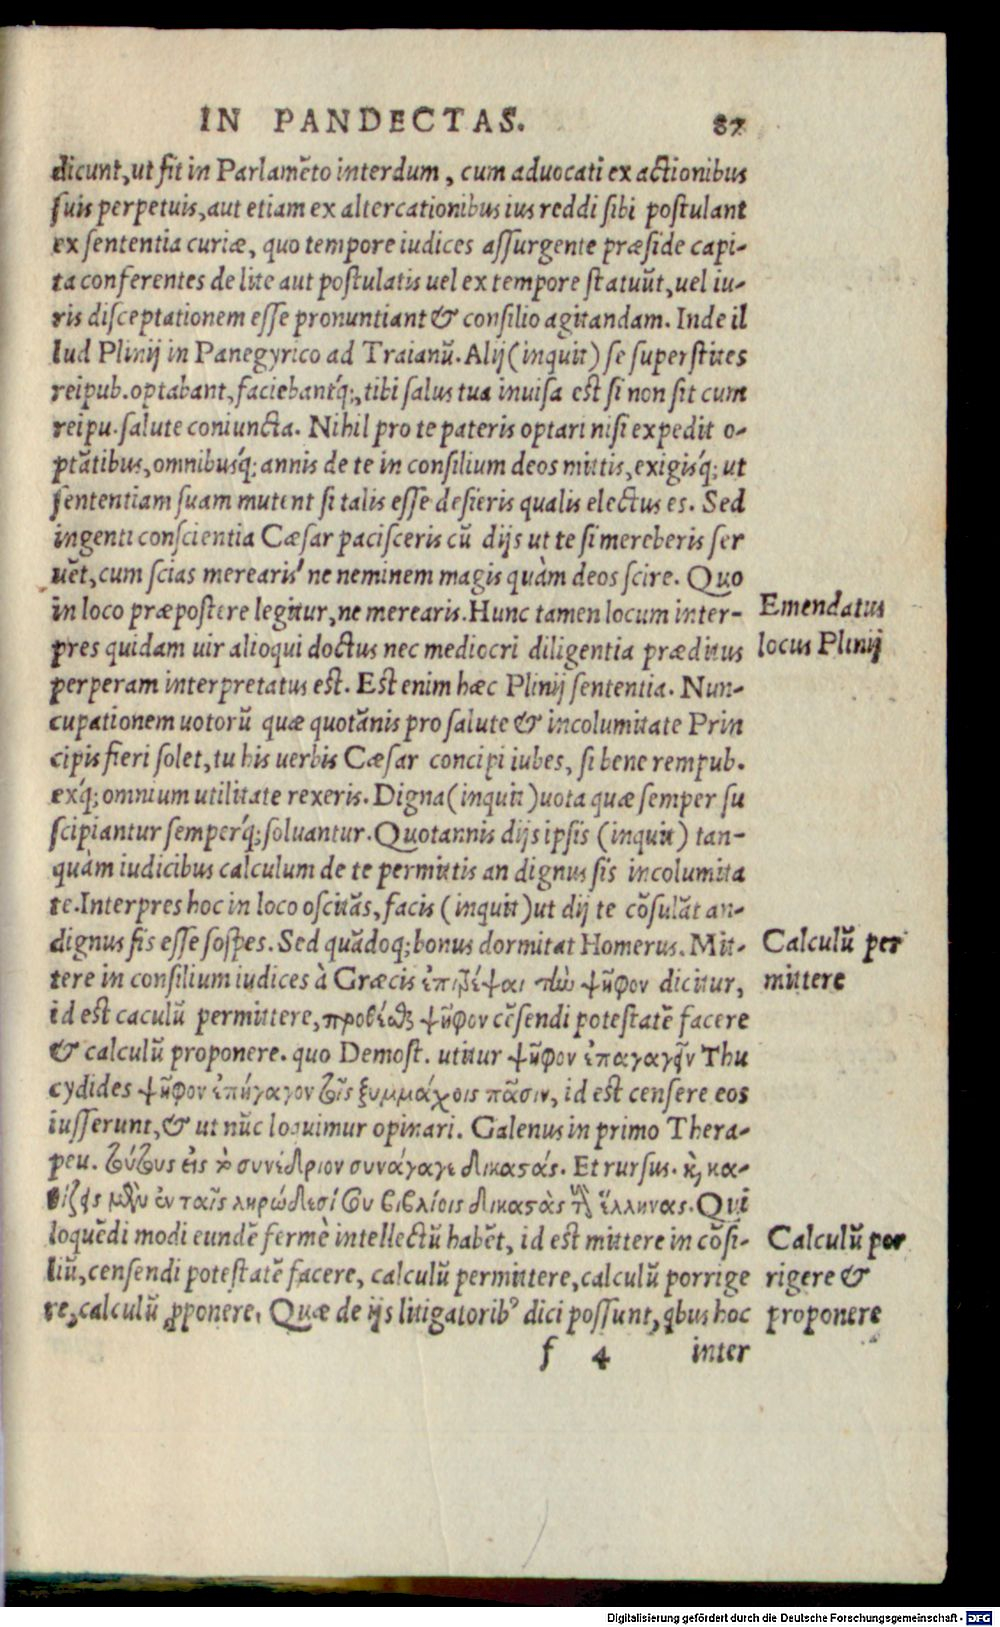 IN PANDECTAS. 87
dicunt, ut fit in Parlamēto interdum, cum aduocati ex actionibus
suis perpetuis, aut etiam ex altercationibus ius reddi sibi postulant
ex sententia curiæ, quo tempore iudices assurgente præside capi-
ta conferentes de lite aut postulatis uel ex tempore statuūt, uel iu-
ris disceptationem esse pronuntiant & consilio agitandam. Inde il
lud Plinij in Panegyrico ad Traianū. Alij (inquit) se superstites
reipub. optabant, faciebantq́;, tibi salus tua inuisa est si non sit cum
reipu. salute coniuncta. Nihil pro te pateris optari nisi expedit o-
ptātibus, omnibusq́; annis de te in consilium deos mittis, exigisq́; ut
sententiam suam mutent si talis esse desieris qualis electus es. Sed
ingenti conscientia Cæsar pacisceris cū dijs ut te si mereberis ser
uēt, cum scias merearis' ne neminem magis quàm deos scire. Quo
in loco præpostere legitur, ne merearis. Hunc tamen locum inter-
Emendatus
pres quidam uir alioqui doctus nec mediocri diligentia præditus
locus Plinij
perperam interpretatus est. Est enim hæc Plinij sententia. Nun-
cupationem uotorū quæ quotānis pro salute & incolumitate Prin
cipis fieri solet, tu his uerbis Cæsar concipi iubes, si bene rempub.
exq́; omnium utilitate rexeris. Digna (inquit) uota quæ semper su
scipiantur semperq́; soluantur. Quotannis dijs ipsis (inquit) tan-
quàm iudicibus calculum de te permittis an dignus sis incolumita
te. Interpres hoc in loco oscitās, facis (inquit) ut dij te cōsulāt an-
dignus sis esse sospes. Sed quādoq; bonus dormitat Homerus. Mit-
Calculū per
tere in consilium iudices à Græcis ἐπιτρέψαι τὴν ψῆφον dicitur,
mittere
id est caculū permittere, προθέσθαι ψῆφον cēsendi potestatē facere
& calculū proponere. quo Demost. utitur ψῆφον ἐπαγαγεῖν Thu
cydides ψῆφον ἐπήγαγον τοῖς ξυμμάχοις πᾶσιν, id est censere eos
iusserunt, & ut nūc loquimur opinari. Galenus in primo Thera-
peu. τούτους εἰς τὸ συνέδριον συνάγαγε δικαστάς. Et rursus. καὶ κα-
θίζεις μὲν ἐν ταῖς ληρώδεσί σου βιβλίοις δικαστὰς τοὺς ἕλληνας. Qui
loquēdi modi eundē fermè intellectū habēt, id est mittere in cōsi-
Calculū por
liū, censendi potestatē facere, calculū permittere, calculū porrige
rigere &
re, calculū ꝓponere, Quæ de ijs litigatorib⁹ dici possunt, qbus hoc
proponere
f 4 inter
Digitalisierung gefördert durch die Deutsche Forschungsgemeinschaft - DFG